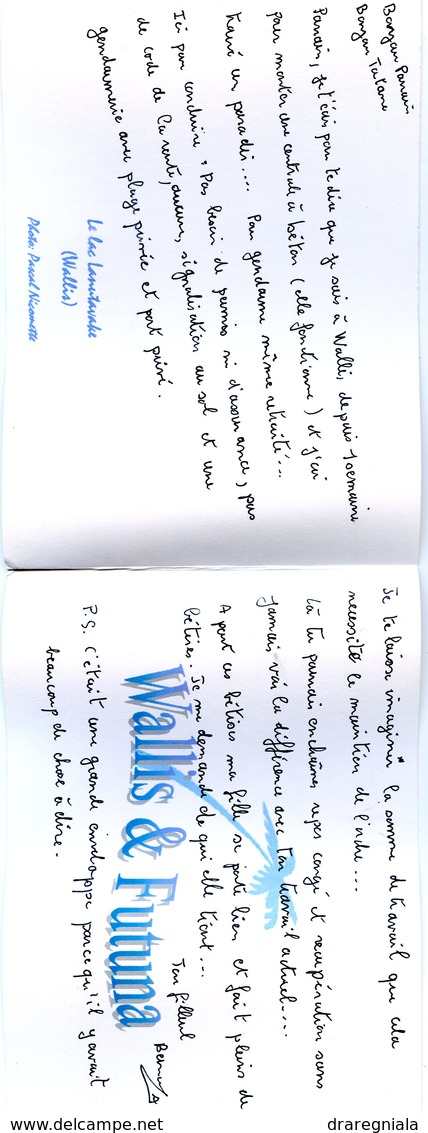 Bonjour Parrain
Bonjour Tatane
Parrain, je t'écris pour te dire que je suis à Wallis, depuis 1 semaine
pour monter une centrale à béton (elle fonctionne) et j'ai
trouvé un paradis.... Pour gendarme même retraité...
Ici pour conduire, Pas besoin de permis ni d'assurance, pas
de code de la route, aucune signalisation au sol et une
gendarmerie avec plage privée et port privé.
Le lac Lanutavake
(Wallis)
Photo: Pascal Nicomette
Je te laisse imaginer la somme de travail que cela
nécessite le maintien de l'ordre...
Là tu pourrais enchaîner repos congé et récupération sans
jamais voir la différence avec ton travail actuel....
A part ces bêtises ma fille se porte bien et fait pleins de
bêtises. Je me demande de qui elle tient...
Ton filleul
P.S. c'était une grande enveloppe parce qu'il y avait
beaucoup de chose à dire.
Wallis & Futuna
www.delcampe.net
draregniala